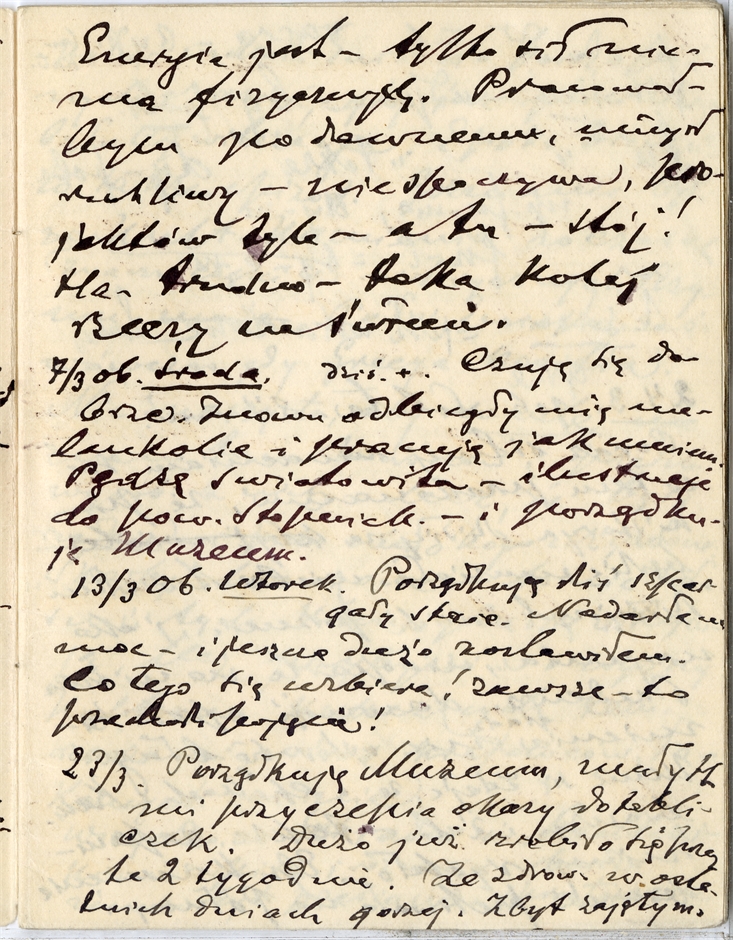 Energia jest – tylko sił nie-
ma fizycznych. Pracował-
bym po dawnemu, umysł
ruchliwy – niespoczywa, pro-
jektów tyle – a tu – stój!
Ha. trudno – taka kolej
rzeczy na świecie.
7/3 06. Środa. dziś. +. Czuję się do-
brze. Znowu odbiegły mię me-
lankolie i pracuję jak umiem.
Pędzę Swiatowita – ilustracje
do pow. Stopnick. – i porządku-
ję Muzeum.
13/3 06. Wtorek. Porządkuję dziś
gały stare. Nadarłem
moc – i jeszcze dużo zostawiłem.
Co tego się uzbiera! zawsze – to
przechodzi pojęcia!
23/3. Porządkuję Muzeum,
mi przyczepia okazy do tabli-
czek. Dużo już zrobiło się przez
te 2 tygodnie. Ze zdrow. w osta-
tnich dniach gorzej. Zbyt zajętym.